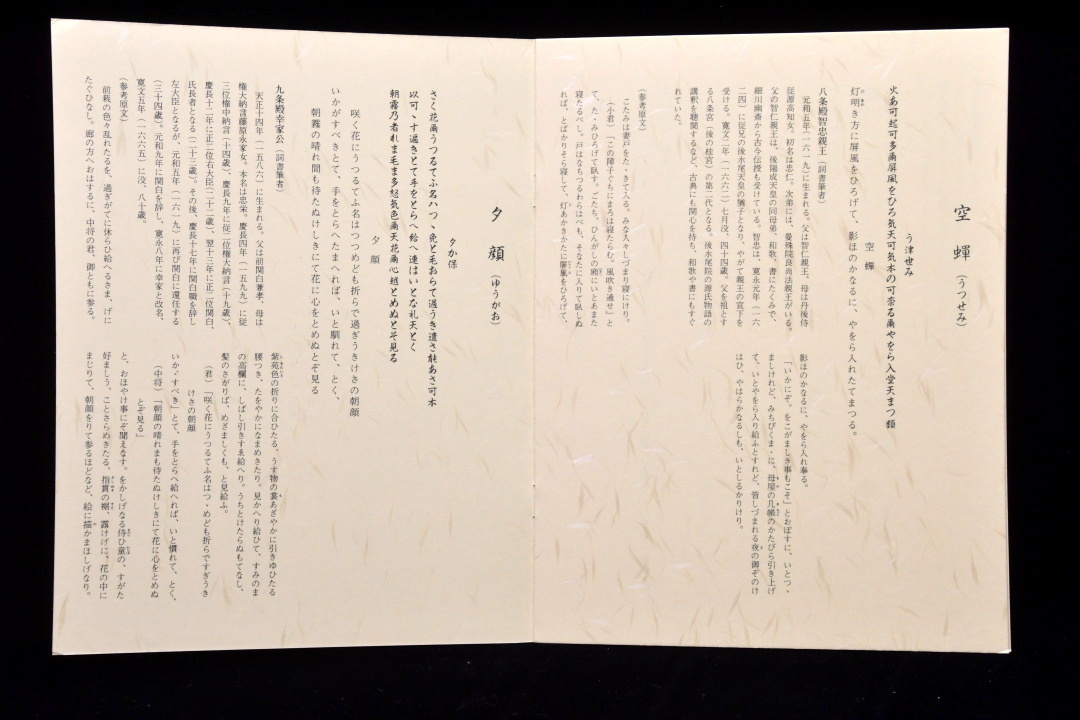 空蟬（うつせみ）
う津世み
火あ可起可多爾屏風をひろ気天可気本の可奈る爾やをら入堂天まつ類
空蟬
灯明き方に屏風をひろげて、影ほのかなるに、やをら入れたてまつる。
八条殿智忠親王（詞書筆者）
元和五年（一六一九）に生まれる。父は智仁親王、母は丹後侍
従源高知女。初名は忠仁。次弟には、曼殊院良尚法親王がいる。
父の智仁親王は、後陽成天皇の同母弟、和歌、書にたくみで、
細川幽斎から古今伝授も受けている。智忠は、寛永元年（一六
二四）に従兄の後水尾天皇の猶子となり、やがて親王の宣下を
受ける。寛文二年（一六六二）七月没、四十四歳。父を祖とす
る八条宮（後の桂宮）の第二代となる。後水尾院の源氏物語の
講釈を聴聞するなど、古典にも関心を持ち、和歌や書にもすぐ
れていた。
（参考原文）
こたみは妻戸をたゝきて入る。みな人々しづまり寝にけり。
（小君）「この障子ぐちにまろは寝たらむ。風吹き通せ」と
て、たゝみひろげて臥す。ごたち、ひんがしの廂にいとあまた
寝たるべし。戸はなちつるわらはべも、そなたに入りて臥しぬ
れば、とばかりそら寝して、灯あかきかたに屏風をひろげて、
影ほのかなるに、やをら入れ奉る。
「いかにぞ。をこがましき事もこそ」とおぼすに、いとつゝ
ましけれど、みちびくまゝに、母屋の几帳のかたびら引き上げ
て、いとやをら入り給ふとすれど、皆しづまれる夜の御ぞのけ
はひ、やはらかなるしも、いとしるかりけり。
夕顔（ゆうがお）
夕か保
さく花爾うつるてふ名ハつゝ免と毛おらて過うき遣さ能あさ可本
以可ゝすへ過きとて手をとらへ給へ連はいとな礼天とく
朝霧乃者れま毛まま多怒気色爾天花爾心越とめぬとそ見る
夕顔
咲く花にうつるてふ名はつつめども折らで過ぎうきけさの朝顔
いかがすべきとて、手をとらへたまへれば、いと馴れて、とく、
朝霧の晴れ間も待たぬけしきにて花に心をとめぬとぞ見る
九条殿幸家公（詞書筆者）
天正十四年（一五八六）に生まれる。父は前関白兼孝、母は
権大納言藤原永家女。本名は忠栄。慶長四年（一五九九）に従
三位権中納言（十四歳）、慶長九年に従二位権大納言（十九歳）、
慶長十二年に正二位右大臣（二十二歳）、翌十三年に正二位関白、
氏長者となる（二十三歳）。その後、慶長十七年に関白職を辞し
左大臣となるが、元和五年（一六一九）に再び関白に還任する
（三十四歳）。元和九年に関白を辞し、寛永八年に幸家と改名、
寛文五年（一六六五）に没、八十歳。
（参考原文）
前栽の色々乱れたるを、過ぎがてに休らひ給へるさま、げに
たぐひなし。廊の方へおはするに、中将の君、御ともに参る。
紫苑色の折りに合ひたる、うす物の裳あざやかに引きゆひたる
腰つき、たをやかになまめきたり。見かへり給ひて、すみのま
の高欄に、しばし引きすゑ給へり。うちとけたらぬもてなし、
髪のさがりば、めざましくも、と見給ふ。
（君）「咲く花にうつるてふ名はつゝめども折らですぎうき
けさの朝顔
いかゞすべき」とて、手をとらへ給へれば、いと慣れて、とく、
（中将）「朝顔の晴れまも待たぬけしきにて花に心をとめぬ
とぞ見る」
と、おほやけ事にぞ聞えなす。をかしげなる侍ひ童の、すがた
好ましう、ことさらめきたる、指貫の裾、露けげに、花の中に
まじりて、朝顔をりて参るほどなど、絵に描かまほしげなり。